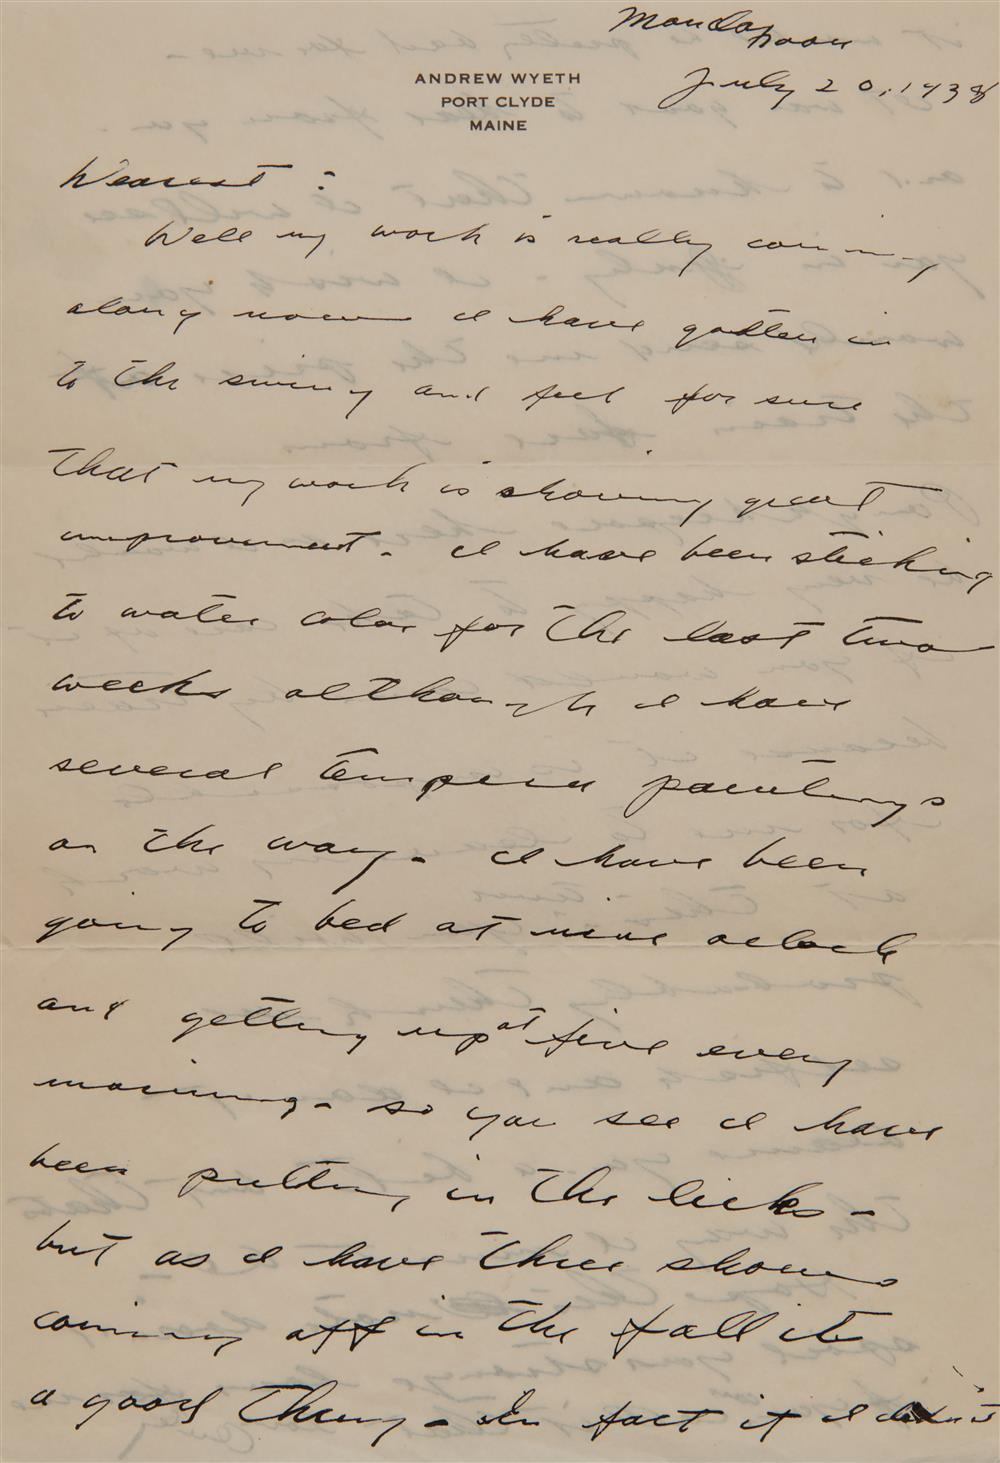 Monday noon
July 20, 1938
ANDREW WYETH
PORT CLYDE
MAINE
Dearest :
Well my work is really coming
along now I have gotten in
to the swing and feel for sure
that my work is showing great
improvement - I have been sticking
to water color for the last two
weeks although I have
several tempera paintings
on the way - I have been
going to bed at nine oclock
and getting up at five every
morning - so you see I have
been putting in the licks -
but as I have three shows
coming off in the fall it
a good thing - In fact if I